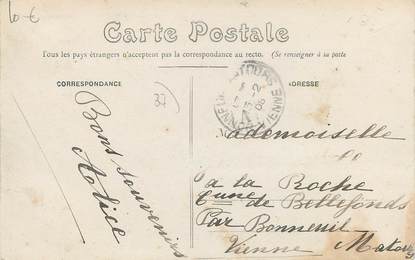 10 €
Carte Postale
Tous les pays étrangers n'acceptent pas la correspondance au recto. (Se renseigner à la poste
CORRESPONDANCE
ADRESSE
37
Bons souvenirs
Alice
Mademoiselle
à la Roche
Cune de Bellefonds
Par Bonneuil
Vienne